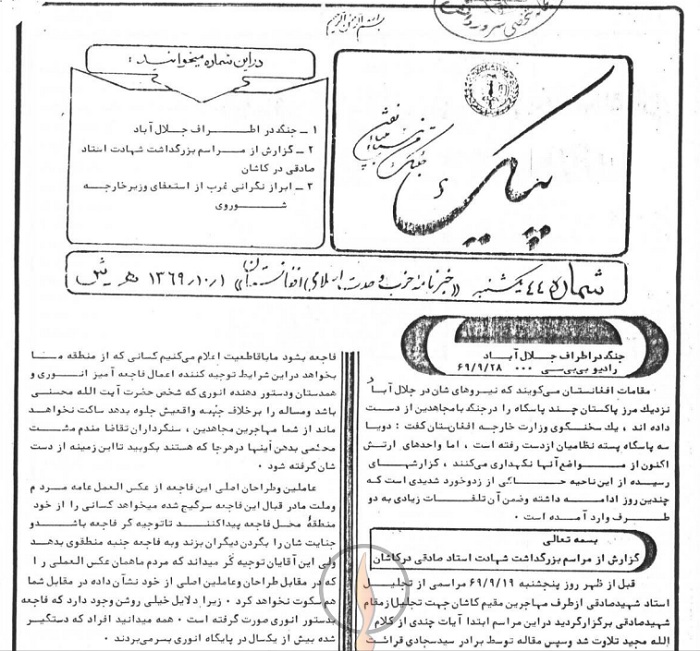 بسم الله الرحمن الرحیم
پیک
شماره ۴۴ یکشنبه «خبرنامه حزب وحدت اسلامی افغانستان» ۱۳۶۹٫۱۰٫۱ هـ ش
دراین شماره میخوانید :
۱ ــ جنگ در اطراف جلال آباد
۲ ــ گزارش از مراسم بزرگداشت شهادت استاد
صادقی در کاشان
۳ ــ ابراز نگرانی غرب از استعفای وزیرخارجه
شوروی
جنگ در اطراف جلال آباد
رادیو بی بی سی ۰۰۰ ۶۹/۹/۲۸
مقامات افغانستان میگویند که نیروهای شان در جلال آباد
نزدیك مرز پاکستان چند پاسگاه را درجنگ بامجاهدین از دست
داده اند ، یك سخنگوی وزارت خارجه افغانستان گفت : دویا
سه پاسگاه پسته نظامیان ازدست رفته است ، اما واحدهای ارتش
اکنون از مواضع آنها نگهداری می‌کنند ، گزارشهای
رسیده از این ناحیه حاکی از زدوخورد شدیدی است که
چندین روز ادامه داشته وضمن آن تلفات زیادی به دو
طرف وارد آمده است ۰
بسمه تعالی
گزارش از مراسم بزرگداشت شهادت استاد صادقی درکاشان
قبل از ظهر روز پنجشنبه ۶۹/۹/۱۹ مراسمی از تجلیل
استاد شهیدصادقی ازطرف مهاجرین مقیم کاشان جهت تجلیل از مقام
شهیدصادقی برگزارگردید در این مراسم ابتدا آیات چندی از کلام
الله مجید تلاوت شد وسپس مقاله توسط برادر سیدسجادی قرائت
فاجعه بشود ماباقاطعیت اعلام می‌کنیم کسانی که از منطقه ما
بخواهد دراین شرایط توجیه کننده اعمال فاجعه آمیز انوری و
همدستان ودستور دهنده انوری که شخص حضرت آیت الله محسنی
باشد ومساله را برخلاف جنبه واقعیش جلوه بدهد ساکت نخواهد
ماند از شما مهاجرین مجاهدین ، سنگرداران تقاضا مندم مشت
محکمی بدهن آینها درهرجا که هستند بکوبید تااین زمینه از دست
شان گرفته شود ۰
عاملین وطراحان اصلی این فاجعه از عکس العمل عامه مردم
وملت مادر قبال این فاجعه سرگیج شده میخواهد کسانی را از خود
منطقهٔ محل فاجعه پیداکنند تاتوجیه گر فاجعه باشدو
جنایت شان را بگردن دیگران بزند وبه فاجعه جنبه منطقوی بدهد
ولی این آقایان توجیه گر میداند که مردم ماهمان عکس العملی را
که در مقابل طراحان وعاملین اصلی از خود نشآن داده در مقابل شما
سکوت نخواهد کرد ۰ زیرا دلایل خیلی روشن وجود دارد که فاجعه
بدستور انوری صورت گرفته است ۰ همه میدانید افراد که دستگیر
شده بیش از یکسال در پایگاه انوری بسر می‌بردند ۰